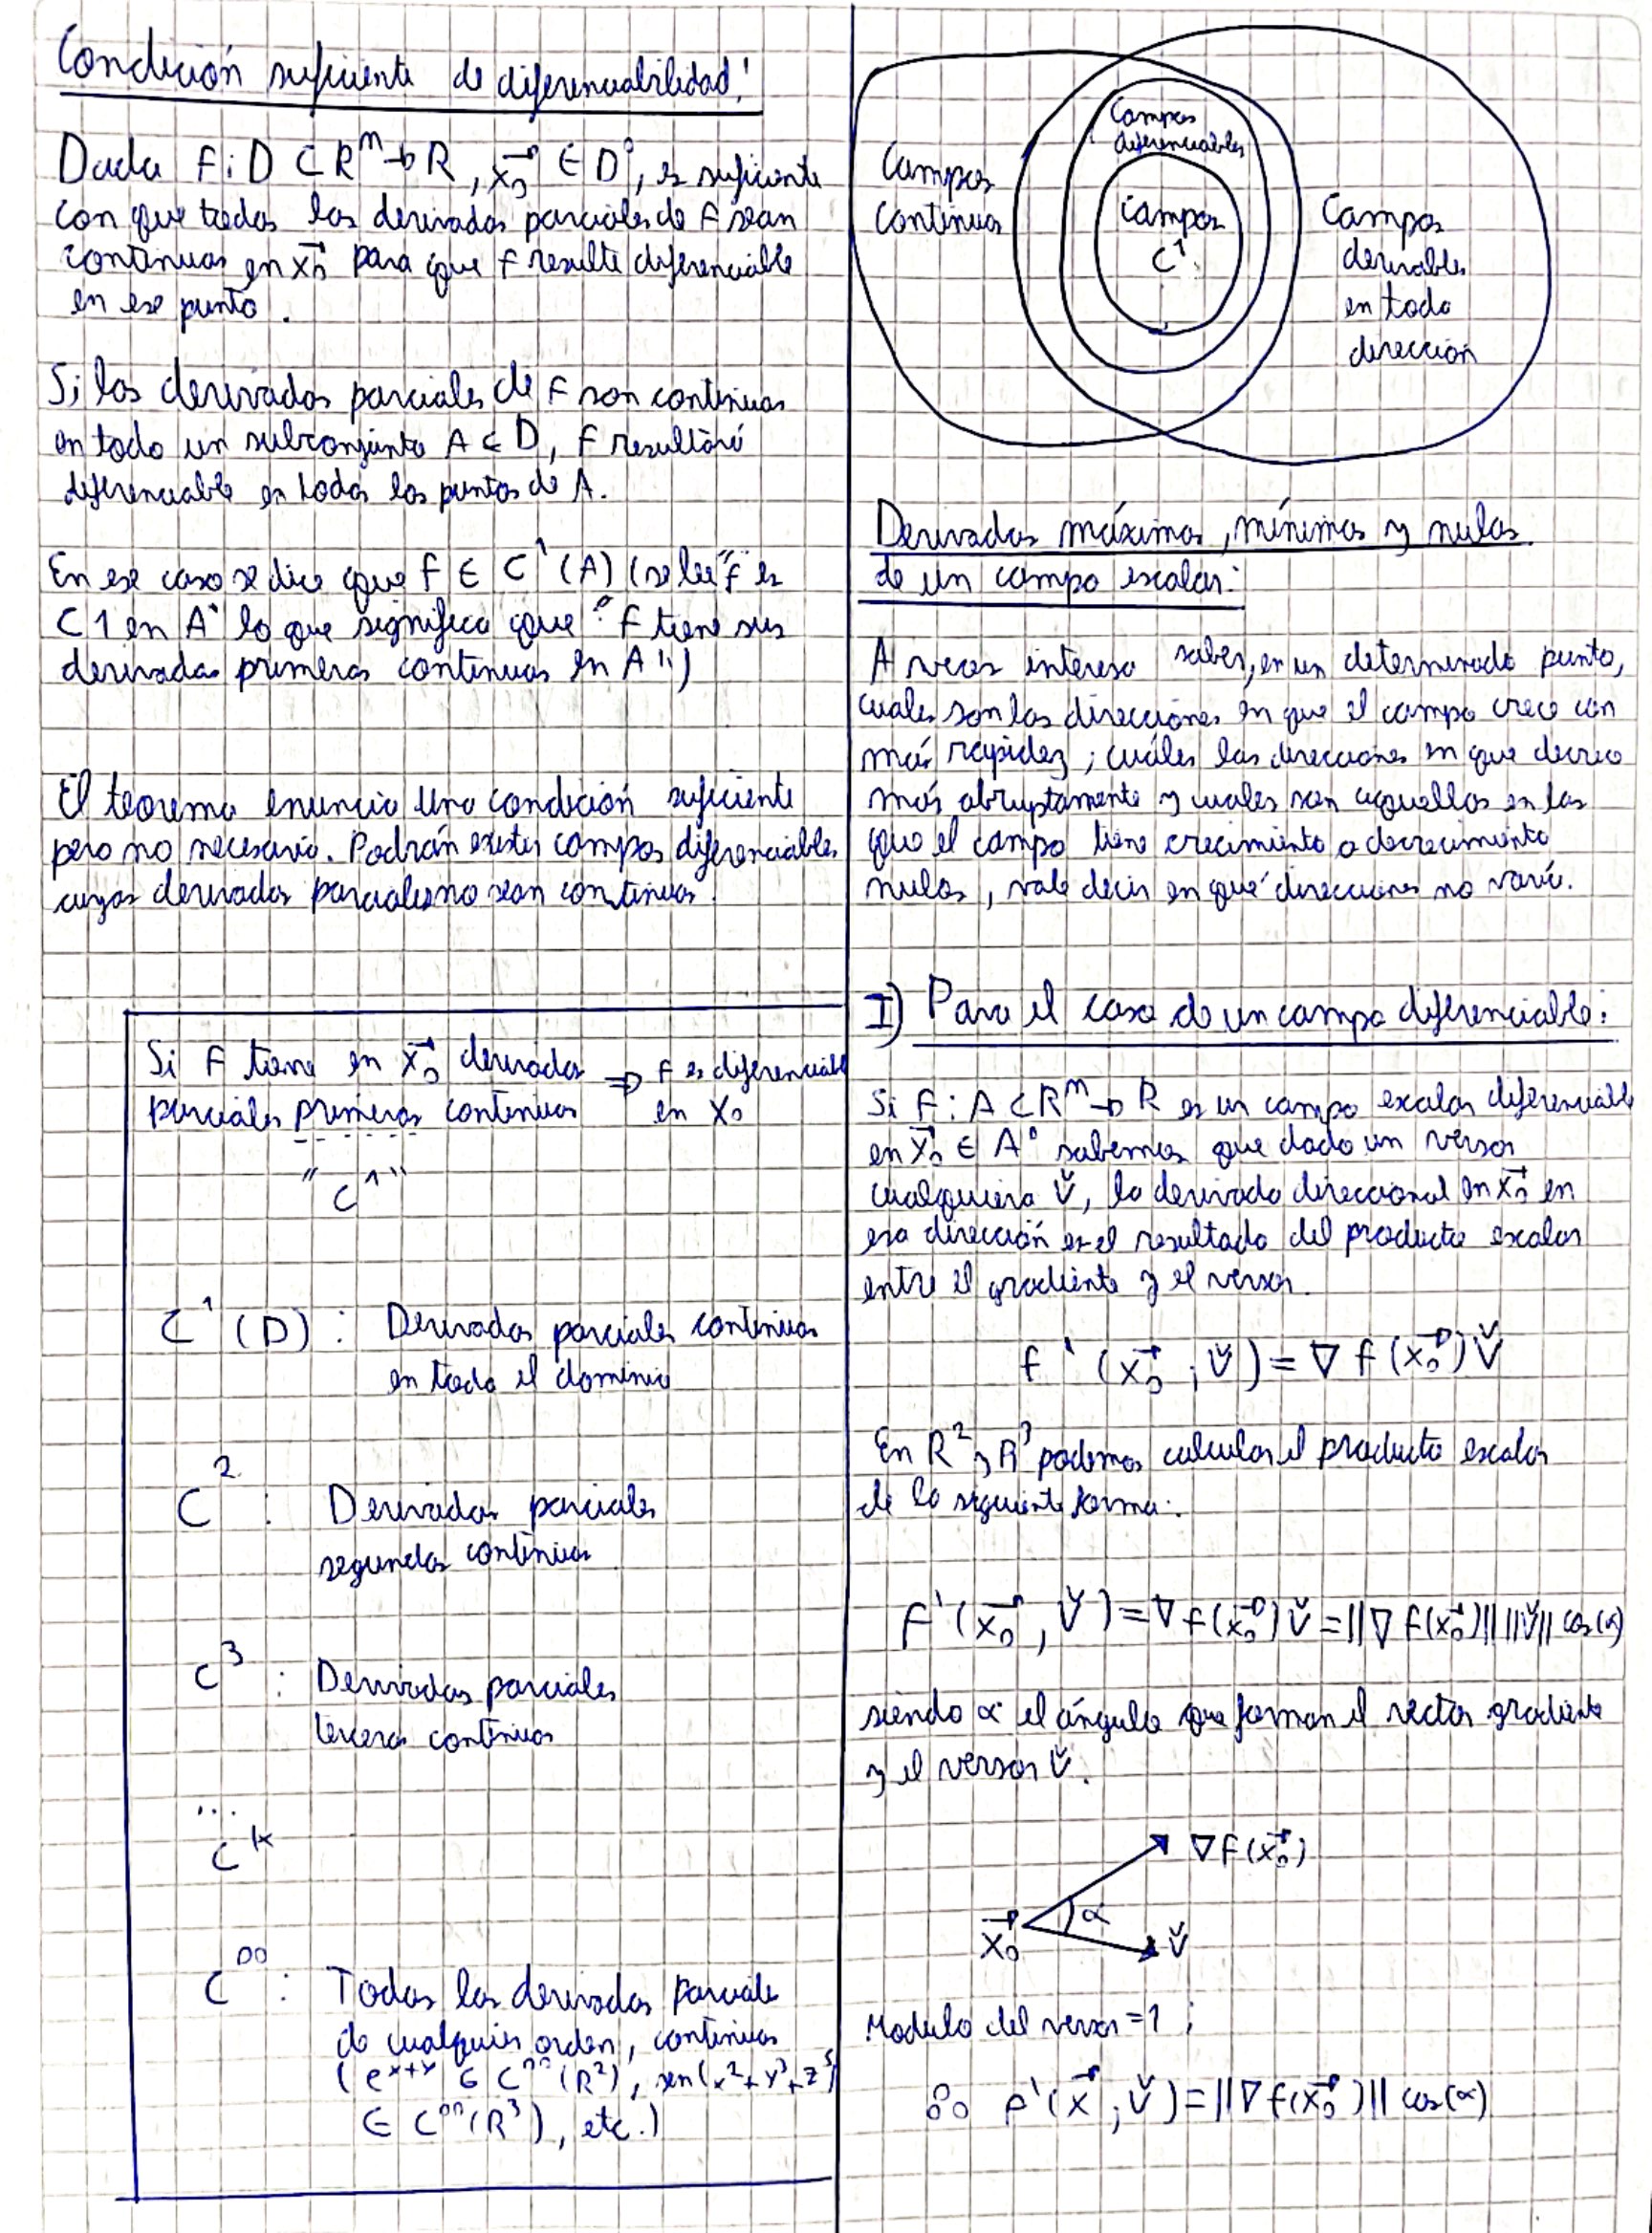 Condición suficiente de diferenciabilidad:
Dada F: D ⊂ R^n → R, x₀⃗ ∈ D°, es suficiente
con que todas las derivadas parciales de F sean
continuas en x₀⃗ para que f resulte diferenciable
en ese punto.
Si las derivadas parciales de F son continuas
en todo un subconjunto A ⊂ D, f resultará
diferenciable en todos los puntos de A.
En ese caso se dice que f ∈ C¹(A) (se lee "f es
C1 en A" lo que significa que "f tiene sus
derivadas primeras continuas en A")
El teorema enuncia una condición suficiente
pero no necesaria. Podrán existir campos diferenciables
cuyas derivadas parciales no sean continuas.
Si F tiene en x₀⃗ derivadas ⇒ f es diferenciable
parciales primeras continuas en x₀
"C¹"
C¹(D): Derivadas parciales continuas
en todo el dominio
C²: Derivadas parciales
segundas continuas
C³: Derivadas parciales
terceras continuas
...
C^k
C^∞: Todas las derivadas parciales
de cualquier orden, continuas
(e^{x+y} ∈ C^∞(R²), sen(x²+y³+z⁵)
∈ C^∞(R³), etc.)
Campos
continuos
Campos
diferenciables
Campos
C¹
Campos
derivables
en toda
dirección
Derivadas máximas, mínimas y nulas
de un campo escalar:
A veces interesa saber, en un determinado punto,
cuales son las direcciones en que el campo crece con
más rapidez; cuáles las direcciones en que decrece
más abruptamente y cuales son aquellas en las
que el campo tiene crecimiento o decrecimiento
nulos, vale decir en qué direcciones no varía.
I) Para el caso de un campo diferenciable:
Si F: A ⊂ R^n → R es un campo escalar diferenciable
en x₀⃗ ∈ A° sabemos que dado un versor
cualquiera v̌, la derivada direccional en x₀⃗ en
esa dirección es el resultado del producto escalar
entre el gradiente y el versor.
f'(x₀⃗; v̌) = ∇f(x₀⃗) v̌
En R² y R³ podemos calcular el producto escalar
de la siguiente forma:
F'(x₀⃗, v̌) = ∇f(x₀⃗) v̌ = ||∇f(x₀⃗)|| ||v̌|| cos(α)
siendo α el ángulo que forman el vector gradiente
y el versor v̌.
∇f(x₀⃗)
α
x₀⃗
v̌
Modulo del versor = 1;
∴ f'(x⃗; v̌) = ||∇f(x₀⃗)|| cos(α)